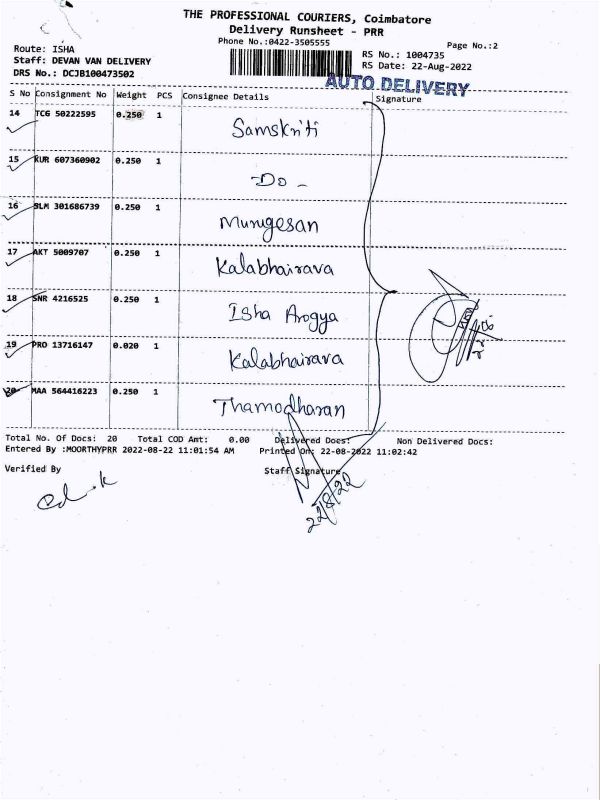 THE PROFESSIONAL COURIERS, Coimbatore
Delivery Runsheet - PRR
Phone No.:0422-3505555
Page No.:2
Route: ISHA
RS No.: 1004735
Staff: DEVAN VAN DELIVERY
RS Date: 22-Aug-2022
DRS No.: DCJB100473502
AUTO DELIVERY
S No Consignment No Weight PCS Consignee Details Signature
14 TCG 50222595 0.250 1 Samskriti
15 KUR 607360902 0.250 1 -Do-
16 SLM 301686739 0.250 1 Murugesan
17 AKT 5009707 0.250 1 Kalabhairava
18 SNR 4216525 0.250 1 Isha Arogya
19 PRO 13716147 0.020 1 Kalabhairava
20 MAA 564416223 0.250 1 Thamodharan
Total No. Of Docs: 20 Total COD Amt: 0.00 Delivered Docs: Non Delivered Docs:
Entered By :MOORTHYPRR 2022-08-22 11:01:54 AM Printed On: 22-08-2022 11:02:42
Verified By Staff Signature
22/8/22